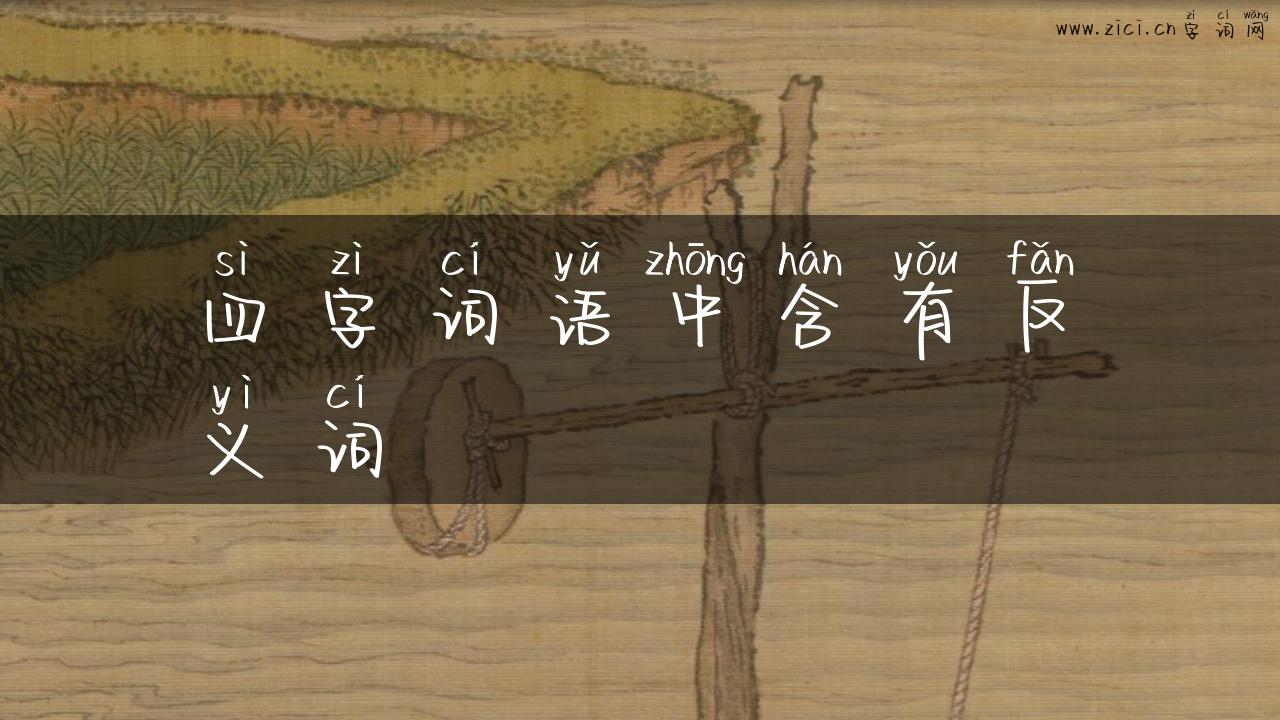 zì cí wǎng
www.zici.cn 字词网
sì zì cí yǔ zhōng hán yǒu fǎn
四字词语中含有反
yì cí
义词